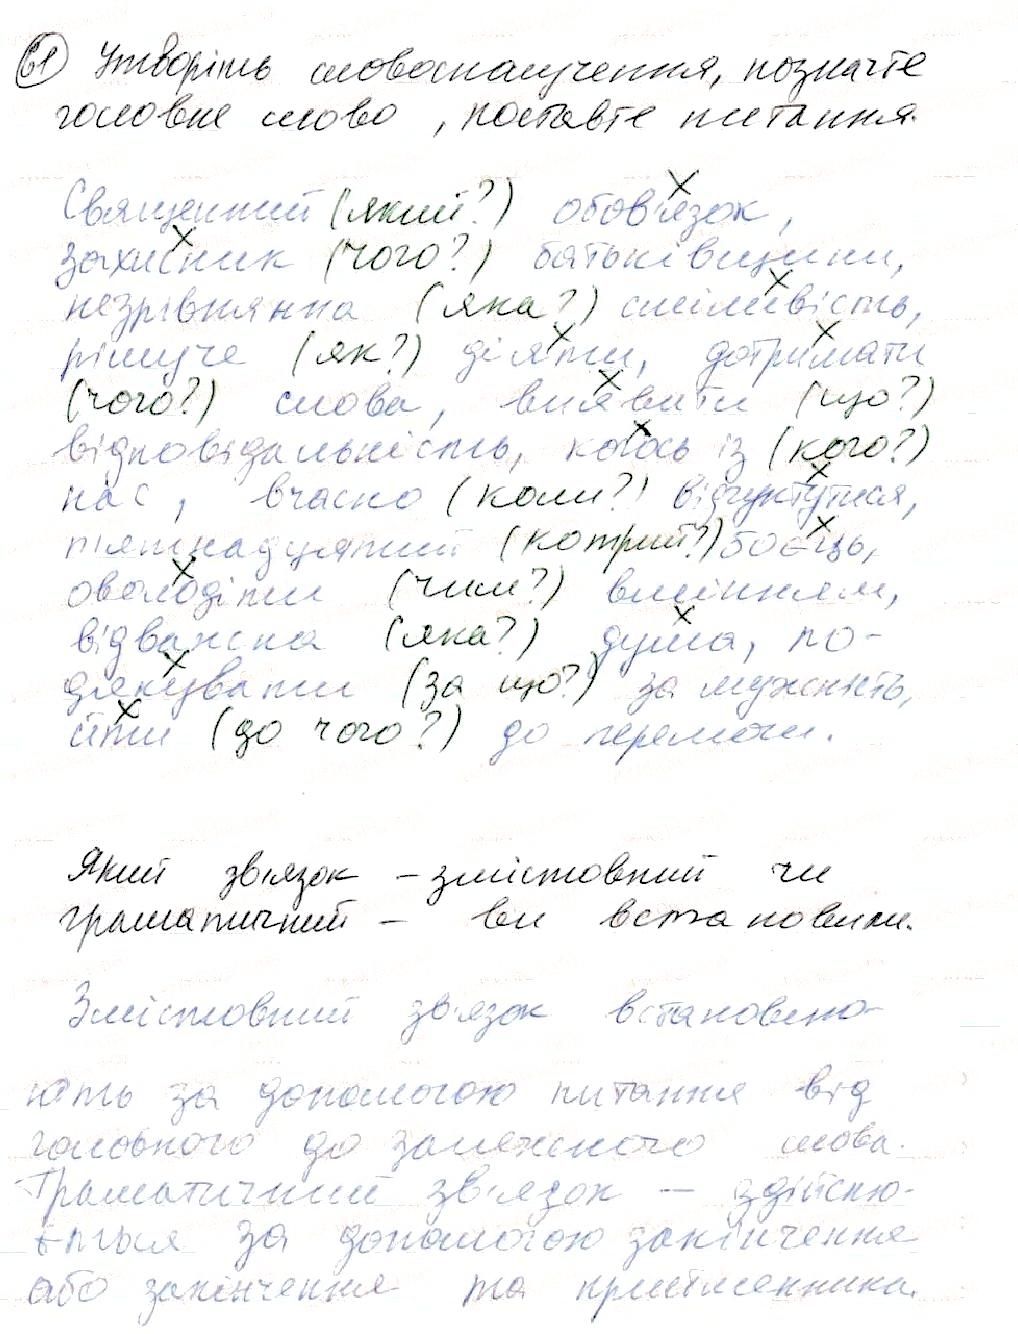 61 Утворіть словосполучення, позначте
головне слово, поставте питання.
Священний (який?) обов'язок,
захисник (чого?) батьківщини,
незрівнянна (яка?) сміливість,
рішуче (як?) діяти, дотримати
(чого?) слова, виявити (що?)
відповідальність, когось із (кого?)
нас, вчасно (коли?) відгукнутися,
п'ятнадцятий (котрий?) боєць,
оволодіти (чим?) вмінням,
відважна (яка?) душа, по-
дякувати (за що?) за мужність,
йти (до чого?) до перемоги.
Який зв'язок – змістовний чи
граматичний – ви встановили.
Змістовний зв'язок встановлю-
ють за допомогою питання від
головного до залежного слова.
Граматичний зв'язок – здійсню-
ється за допомогою закінчення
або закінчення та прийменника.